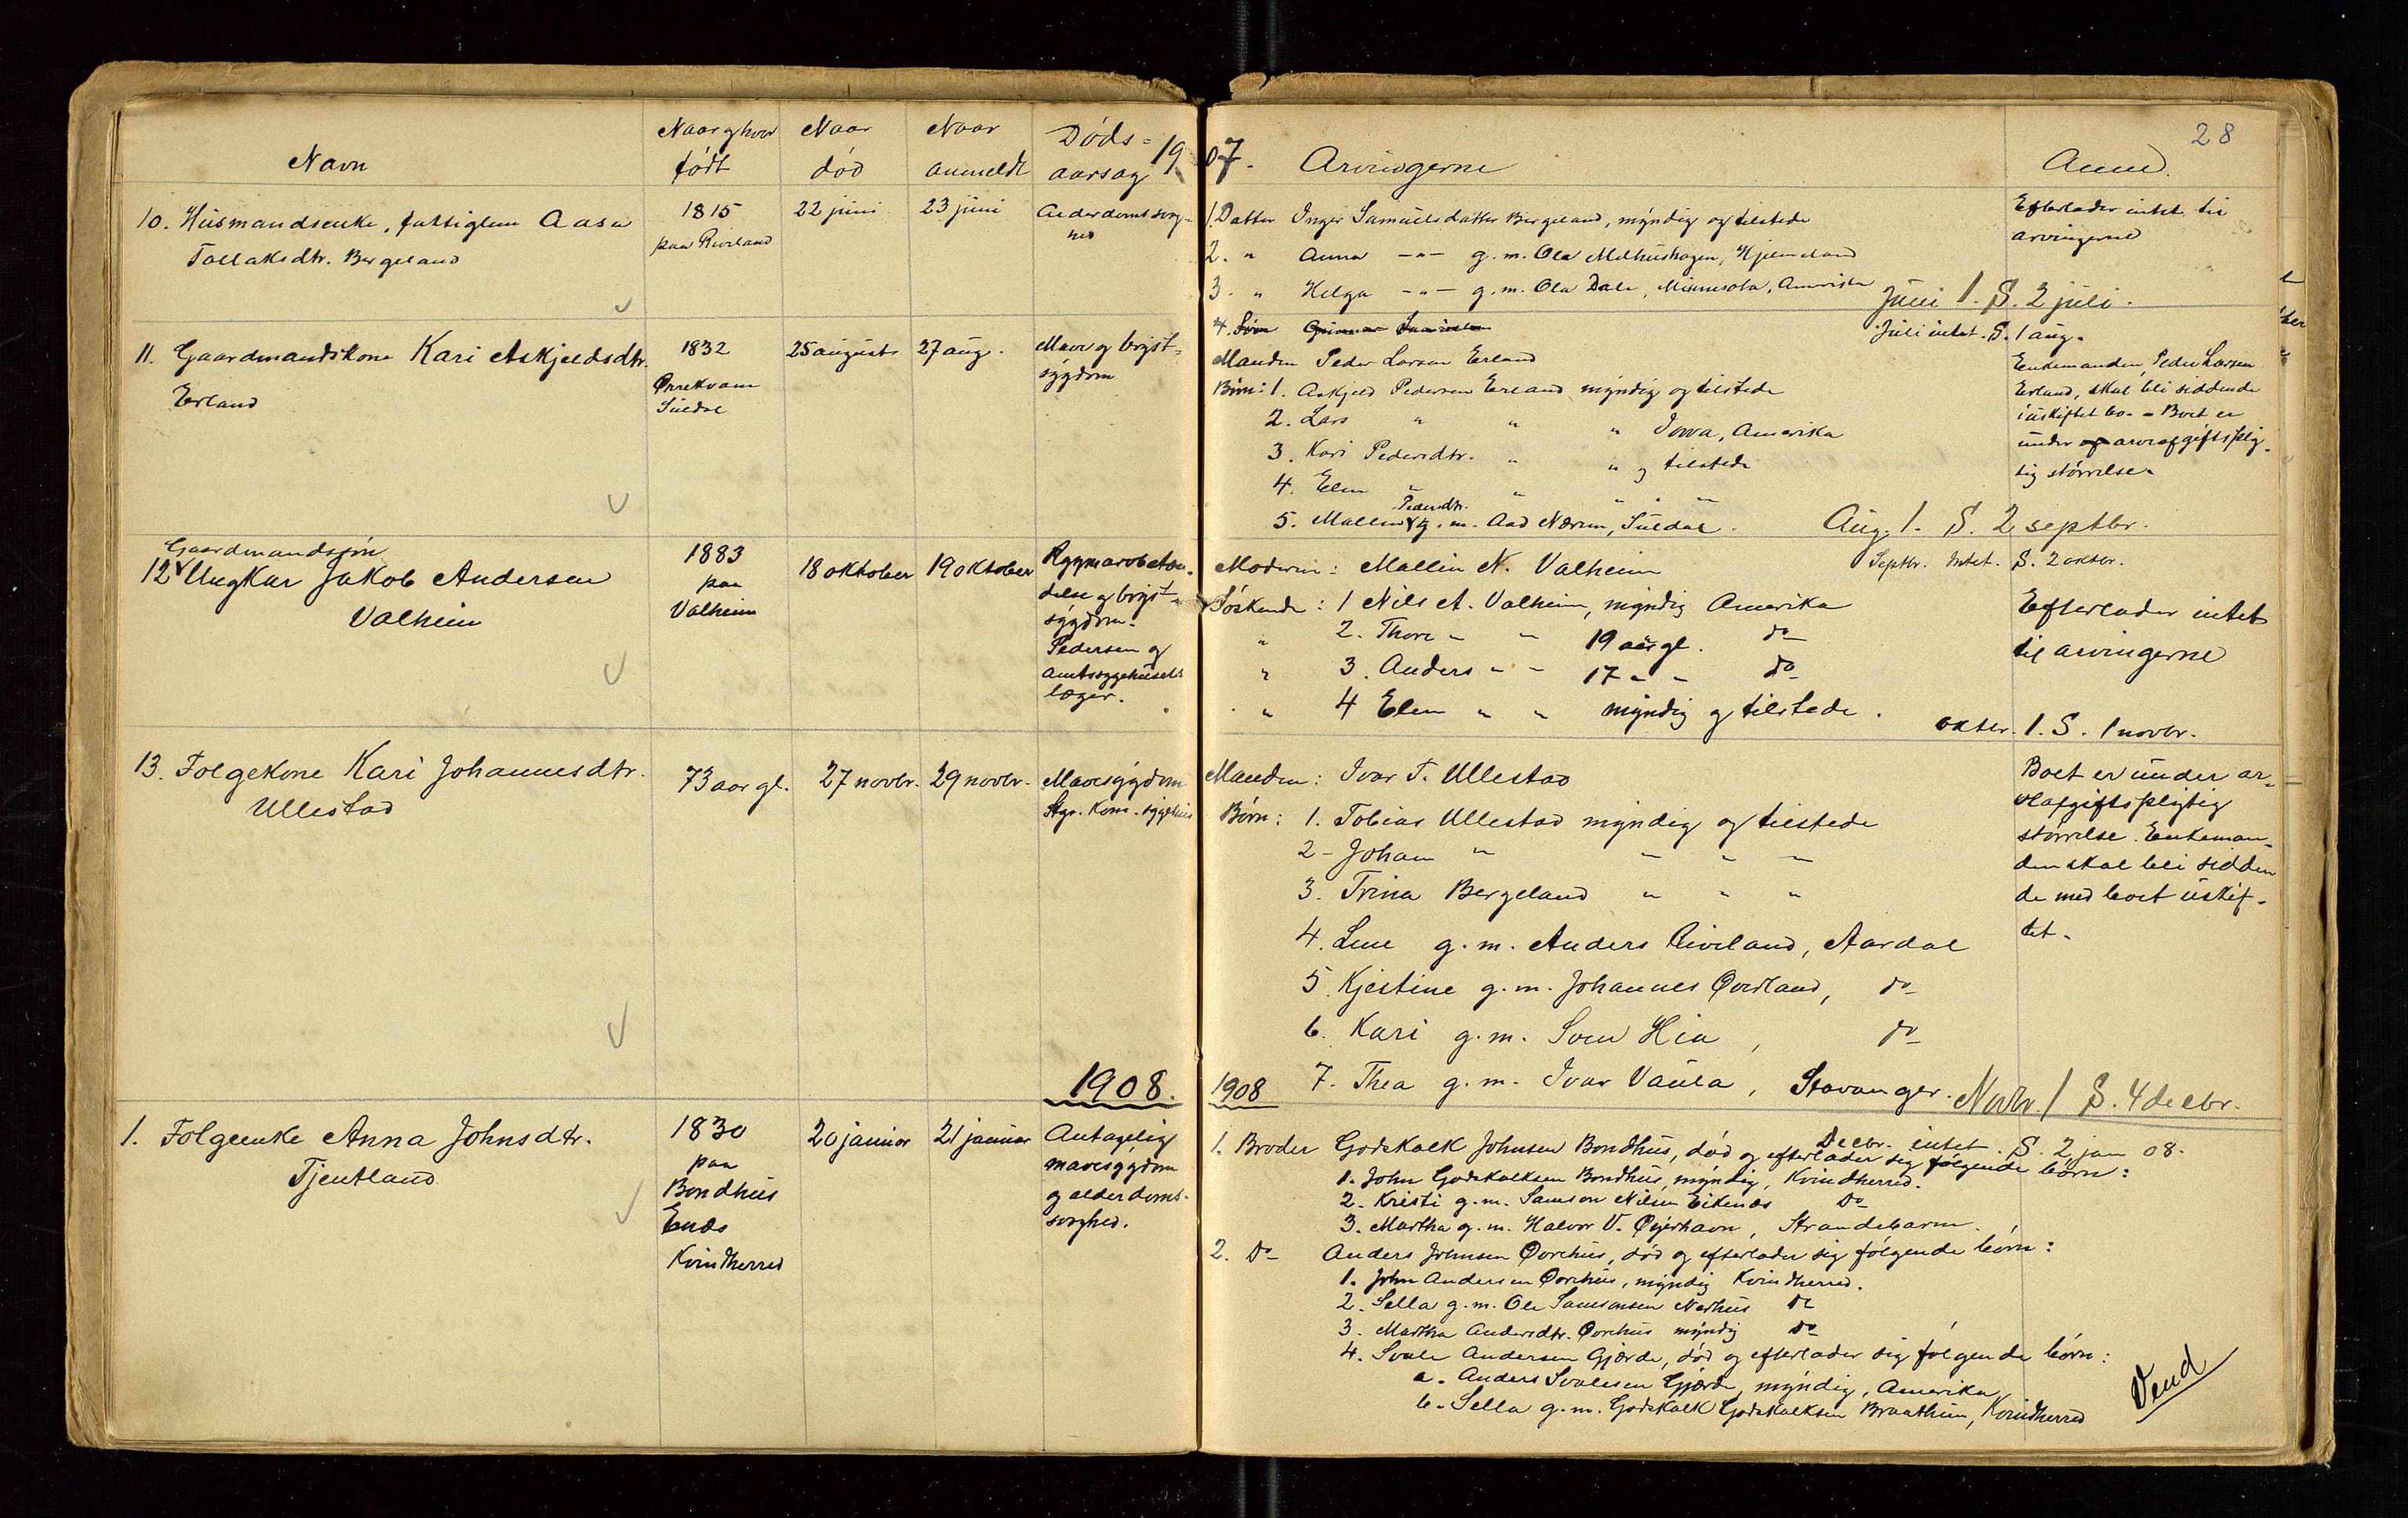 28
Navn
Naar og hvor født
Naar død
Naar anmeldt
Døds= aarsag
1907.
Arvingerne
Anmd.
10. Husmandsenke, fattiglem Aasa
Tollaksdtr. Bergeland
1815
paa Riveland
22 juni
23 juni
Alderdomssvag-
hed
1. Datter Inger Samuelsdatter Bergeland, myndig og tilstede
2. " Anna -"- g.m. Ola Melhushagen, Hjelmeland
3. " Helga -"- g.m. Ola Dale, Minnesota, Amerika
4. Søn
Efterlader intet til
arvingerne
Juni 1. S. 2 juli.
Juli intet. S. 1 aug.
11. Gaardmandskone Kari Askjeldsdtr.
Erland
1832
Ørrekvam
Suldal
25 august
27 aug.
Mave og bryst=
sygdom
Manden Peder Larsen Erland
Børn: 1. Askjeld Pedersen Erland myndig og tilstede
2. Lars " " " Iowa, Amerika
3. Kari Pedersdtr. " " og tilstede
4. Elen " " " " "
Pedersdtr.
5. Mallin g.m. Aad Nærem, Suldal.
Enkemanden, Peder Larsen
Erland, skal bli siddende
i uskiftet bo. - Boet er
under arveafgiftsplig-
tig størrelse.
Aug. 1. S. 2 septbr.
Septbr. Intet. S. 2 oktbr.
Gaardmandssøn
12 Ungkar Jakob Andersen
Valheim
1883
paa
Valheim
18 oktober
19 oktober
Rygmarvbetæn-
delse og bryst-
sygdom.
Pedersen og
amtssygehusets
læger.
Moderen: Mallin N. Valheim
Søskende: 1 Nils A. Valheim, myndig Amerika
" 2. Thore " " 19 aar gl. do
" 3. Anders " " 17 " " do
" 4 Elen " " myndig og tilstede.
Efterlader intet
til arvingerne
oktbr. 1. S. 1 novbr.
13. Folgekone Kari Johannesdtr.
Ullestad
73 aar gl.
27 novbr.
29 novbr.
Mavesygdom
Stgr. Kom. sygehus
Manden: Ivar T. Ullestad
Børn: 1. Tobias Ullestad myndig og tilstede
2 - Johan " " " "
3. Trina Bergeland " " "
4. Line g.m. Anders Riveland, Aardal
5. Kjestine g.m. Johannes Øvrland, do
6. Kari g.m. Sven Hia, do
7. Thea g.m. Ivar Vaula, Stavanger.
Boet er under ar-
veafgiftspligtig
størrelse. Enkeman-
den skal bli sidden
de med boet uskif-
tet.
Novbr. 1 S. 4 decbr.
Decbr. intet. S. 2 jan 08.
1908.
1908
1. Folgeenke Anna Johnsdtr.
Tjentland
1830
paa
Bondhus
Enæs
Kvindherred
20 januar
21 januar
Antagelig
mavesygdom
og alderdoms-
svaghed.
1. Broder Godskalk Johnsen Bondhus, død og efterlader sig følgende børn:
1. John Godskalksen Bondhus, myndig, Kvindherred.
2. Kristi g.m. Samson Nilsen Eikenæs do
3. Martha g.m. Halvor V. Øyerhavn, Strandebarm.
2. do Anders Johnsen Øvrehus, død og efterlader sig følgende børn:
1. John Andersen Øvrehus, myndig Kvindherred.
2. Sella g.m. Ole Samsonsen Nedhus do
3. Martha Andersdtr. Øvrehus myndig do
4. Svale Andersen Gjærde, død og efterlader sig følgende børn:
a. Anders Svalesen Gjærde, myndig, Amerika
b. Sella g.m. Godskalk Godskalksen Braathun, Kvindherred
Vend